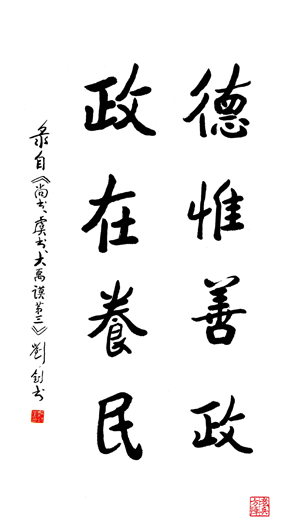 德惟善政
政在養民
录自《尚书、虞书、大禹謨第三》劉劍书